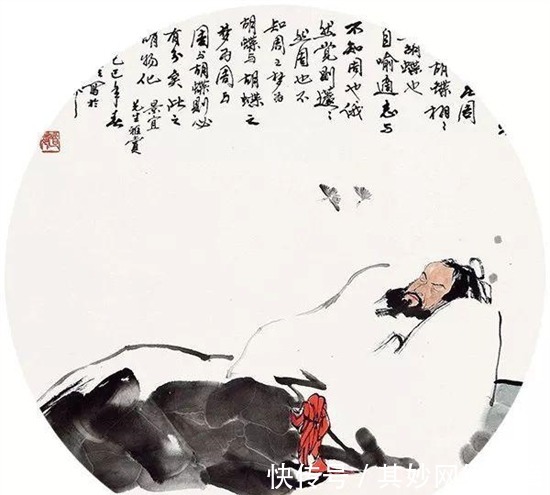 周
胡蝶栩〻
胡蝶也
自喻適志与
不知周也俄
然覺則蘧〻
然周也不
知周之梦为
胡蝶与胡蝶之
梦为周与
周与胡蝶則必
有分矣此之
谓物化
景宜
先生雅賞
己巳年春
写於
快传号/其妙网